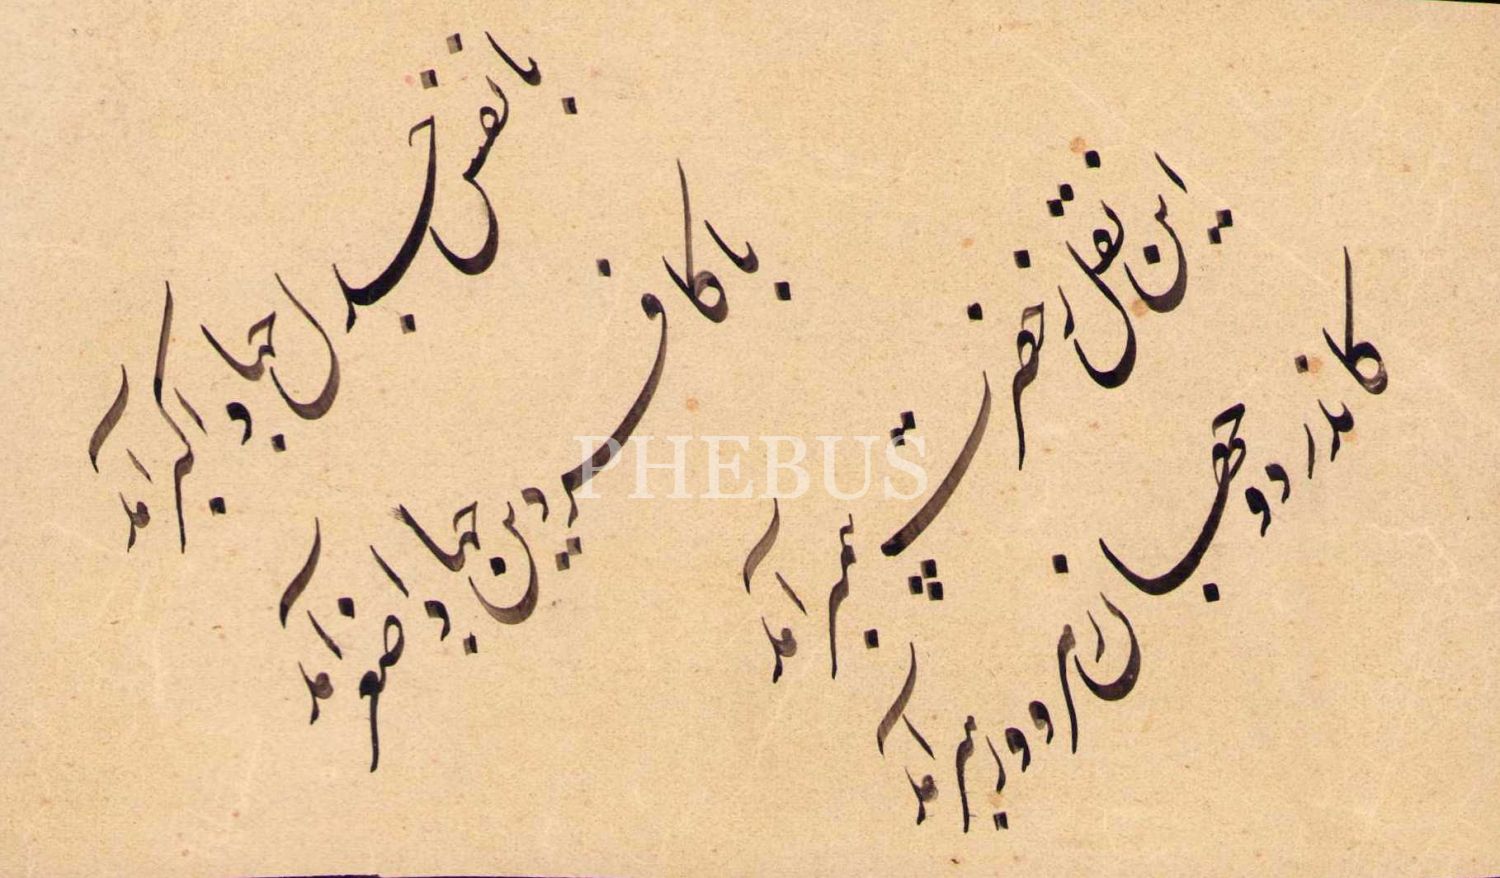 این نقل ز حضرت پیمبر آمد
کاندر دو جهان ز هر دو رهبر آمد
با نفس جدل جهاد اکبر آمد
با کافر دین جهاد اصغر آمد
PHEBUS